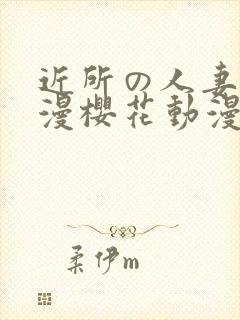 近所の人妻
漫櫻花動漫
柔伊m